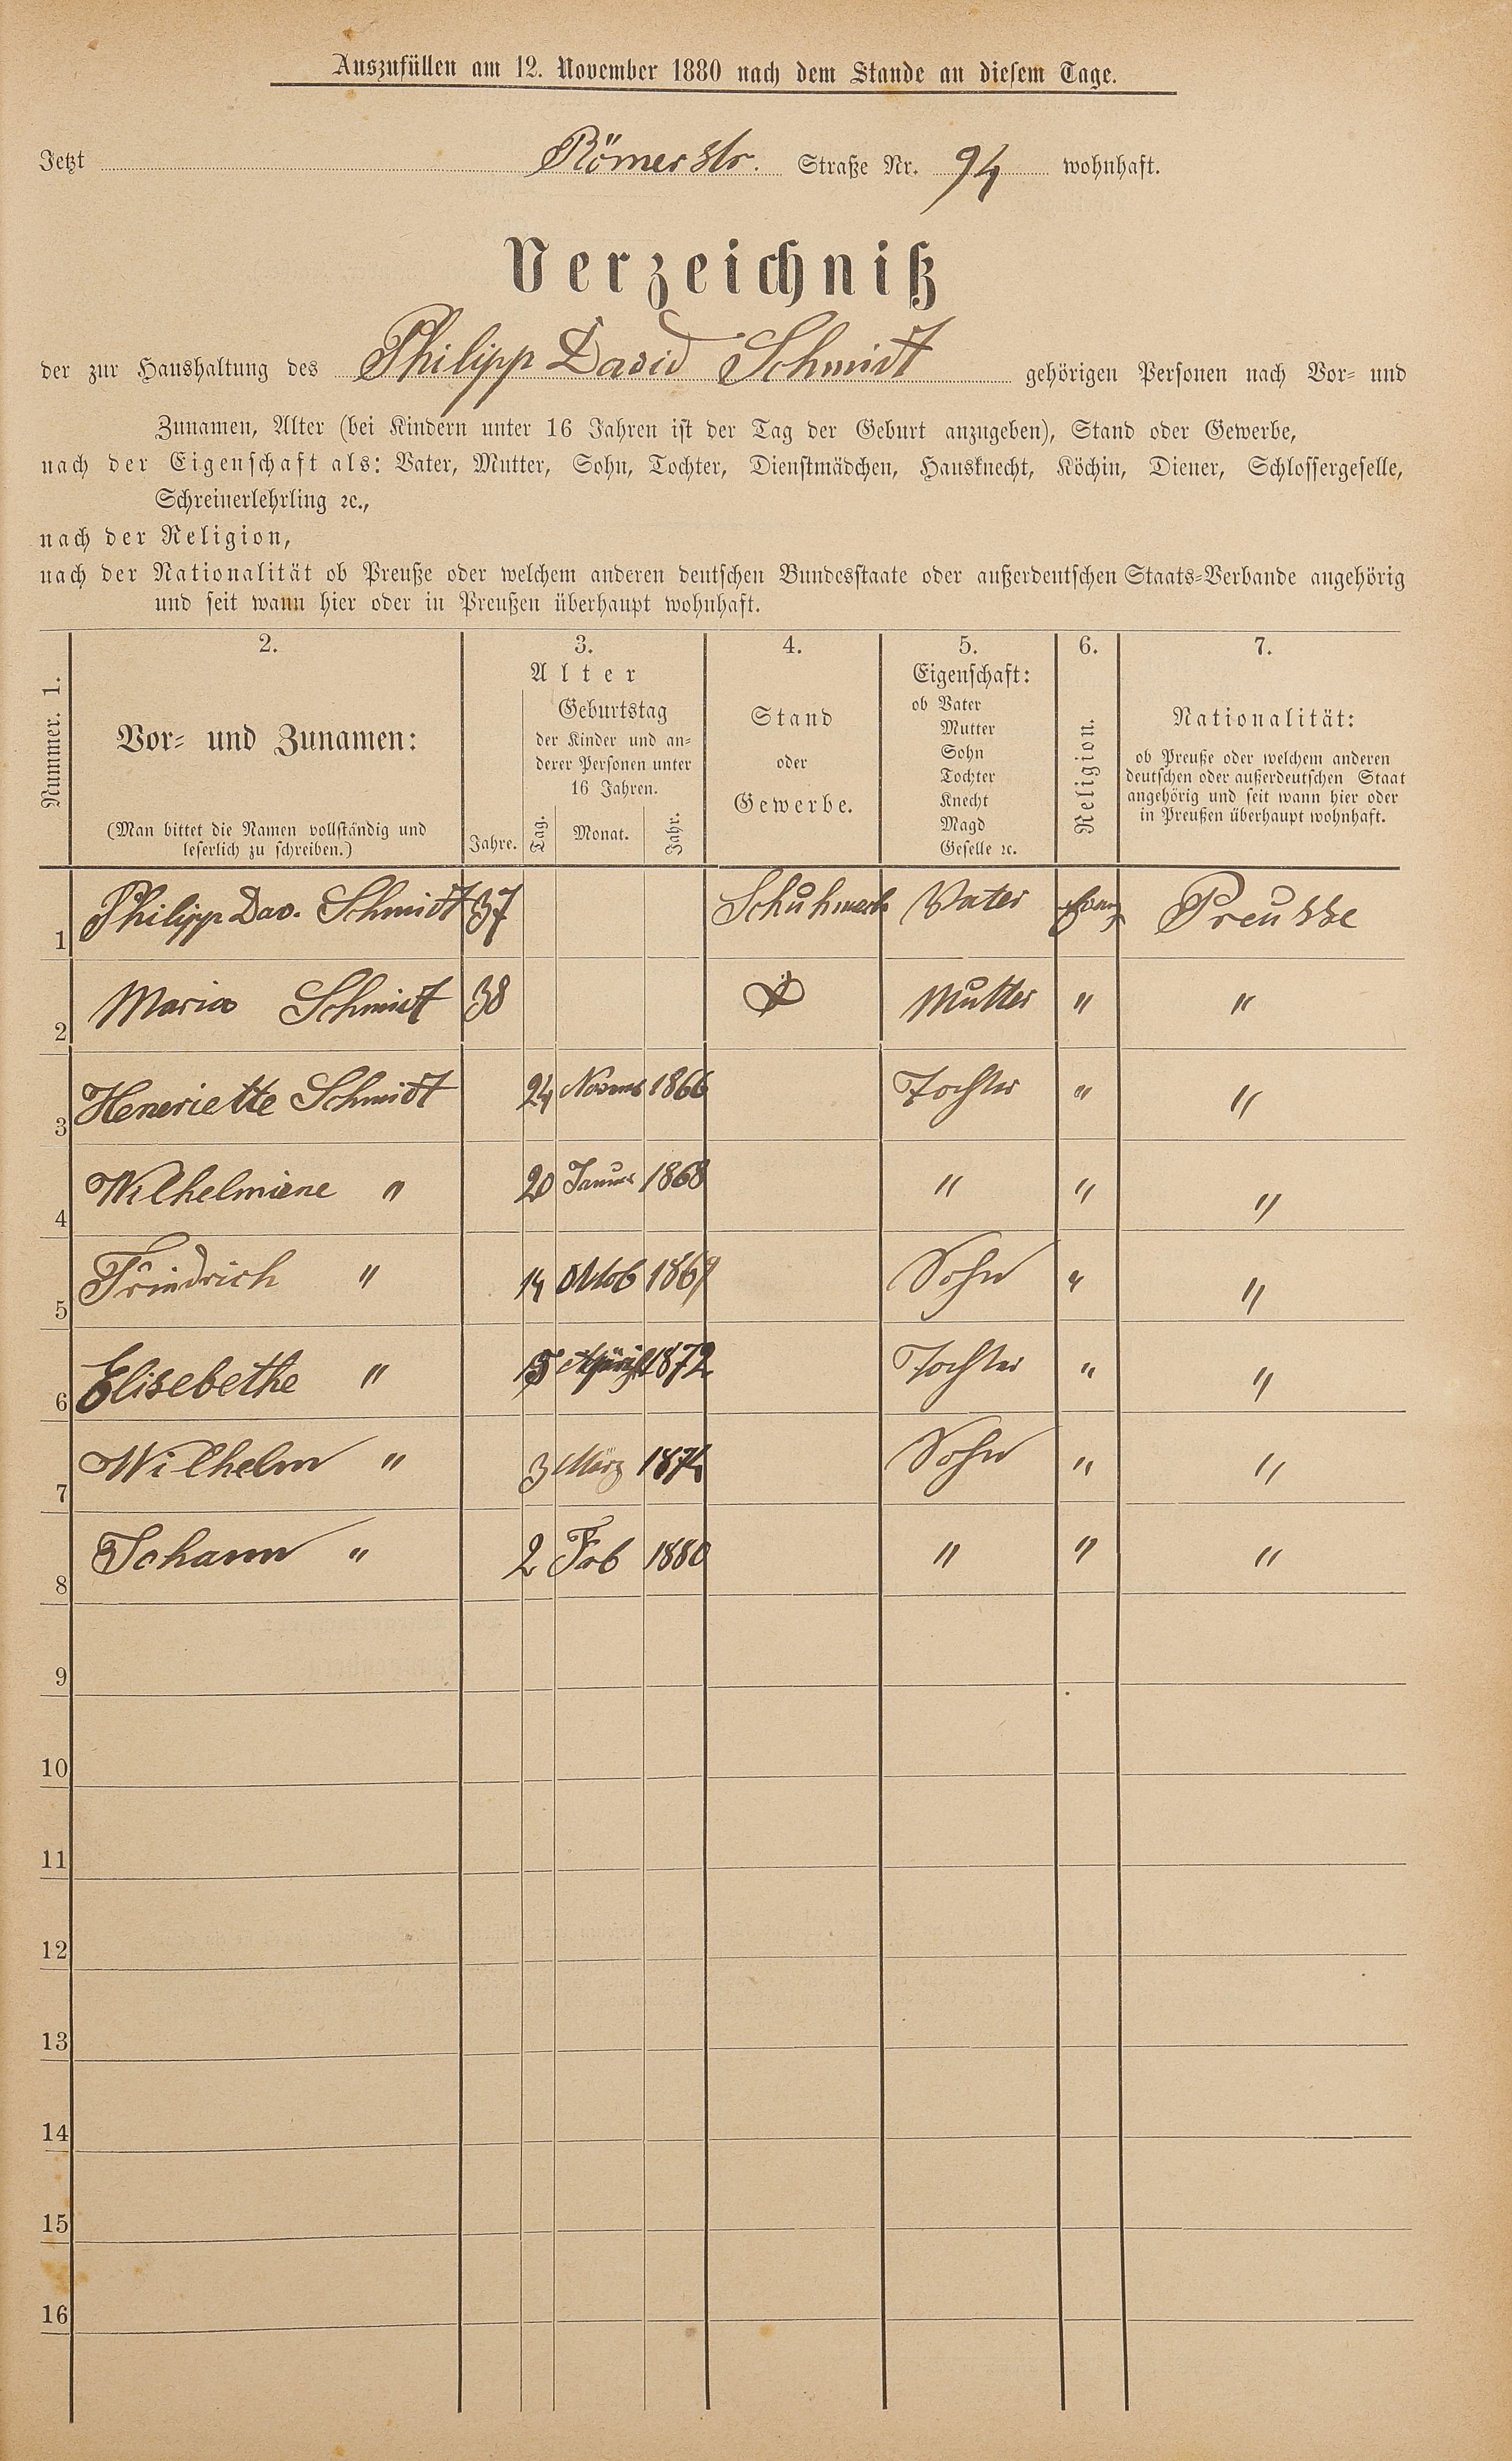 Auszufüllen am 12. November 1880 nach dem Stande an diesem Tage.
Jetzt Römerstr. Straße Nr. 94 wohnhaft.
Verzeichniß
der zur Haushaltung des Philipp David Schmidt gehörigen Personen nach Vor- und
Zunamen, Alter (bei Kindern unter 16 Jahren ist der Tag der Geburt anzugeben), Stand oder Gewerbe,
nach der Eigenschaft als: Vater, Mutter, Sohn, Tochter, Dienstmädchen, Hausknecht, Köchin, Diener, Schlossergeselle,
Schreinerlehrling ꝛc.,
nach der Religion,
nach der Nationalität ob Preuße oder welchem anderen deutschen Bundesstaate oder außerdeutschen Staats-Verbande angehörig
und seit wann hier oder in Preußen überhaupt wohnhaft.
Nummer. 1.
2.
Vor- und Zunamen:
(Man bittet die Namen vollständig und
leserlich zu schreiben.)
3.
Alter
Geburtstag
der Kinder und an-
derer Personen unter
16 Jahren.
Jahre. Tag. Monat. Jahr.
4.
Stand
oder
Gewerbe.
5.
Eigenschaft:
ob Vater
Mutter
Sohn
Tochter
Knecht
Magd
Geselle ꝛc.
6.
Religion.
7.
Nationalität:
ob Preuße oder welchem anderen
deutschen oder außerdeutschen Staat
angehörig und seit wann hier oder
in Preußen überhaupt wohnhaft.
1 Philipp Dav. Schmidt 37 Schuhmach Vater Evang Preusse
2 Maria Schmidt 38 Mutter " "
3 Heneriette Schmidt 24 Novemb 1866 Tochter " "
4 Wilhelmiene " 20 Januar 1868 " " "
5 Friedrich " 14 Oktob 1869 Sohn " "
6 Elisebethe " 15 1872 Tochter " "
7 Wilhelm " 3 März 1874 Sohn " "
8 Johann " 2 Feb 1880 " " "
9
10
11
12
13
14
15
16